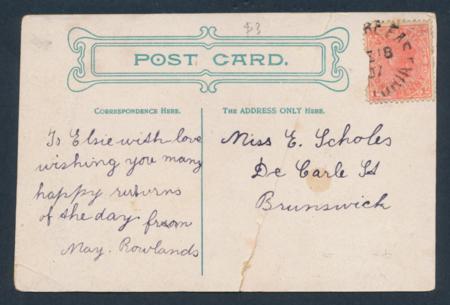 $3
POST CARD.
CORRESPONDENCE HERE.
THE ADDRESS ONLY HERE.
To Elsie with love
wishing you many
happy returns
of the day from
May. Rowlands
Miss E. Scholes
De Carle St
Brunswick